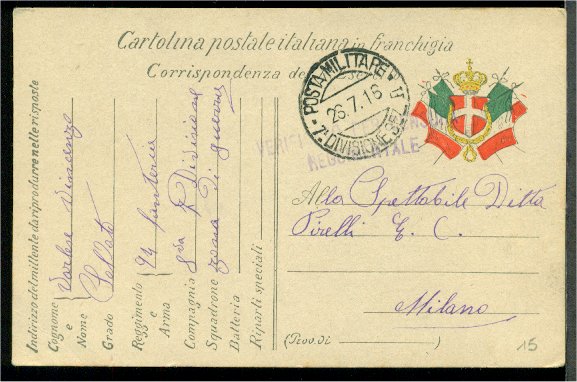 Cartolina postale italiana in franchigia
Corrispondenza de
POSTA MILITARE
26.7.16
7ª DIVISIONE
VERIFI
REGGIMENTALE
Indirizzo del mittente da riprodurre nelle risposte
Cognome e Nome Varlese Vincenzo
Grado Soldato
Reggimento e Arma 94 fanteria
Compagnia 8va 7 Divisione
Squadrone zona di guerra
Batteria
Riparti speciali
Alla Spettabile Ditta
Pirelli E. C.
Milano
(Prov. di )
15